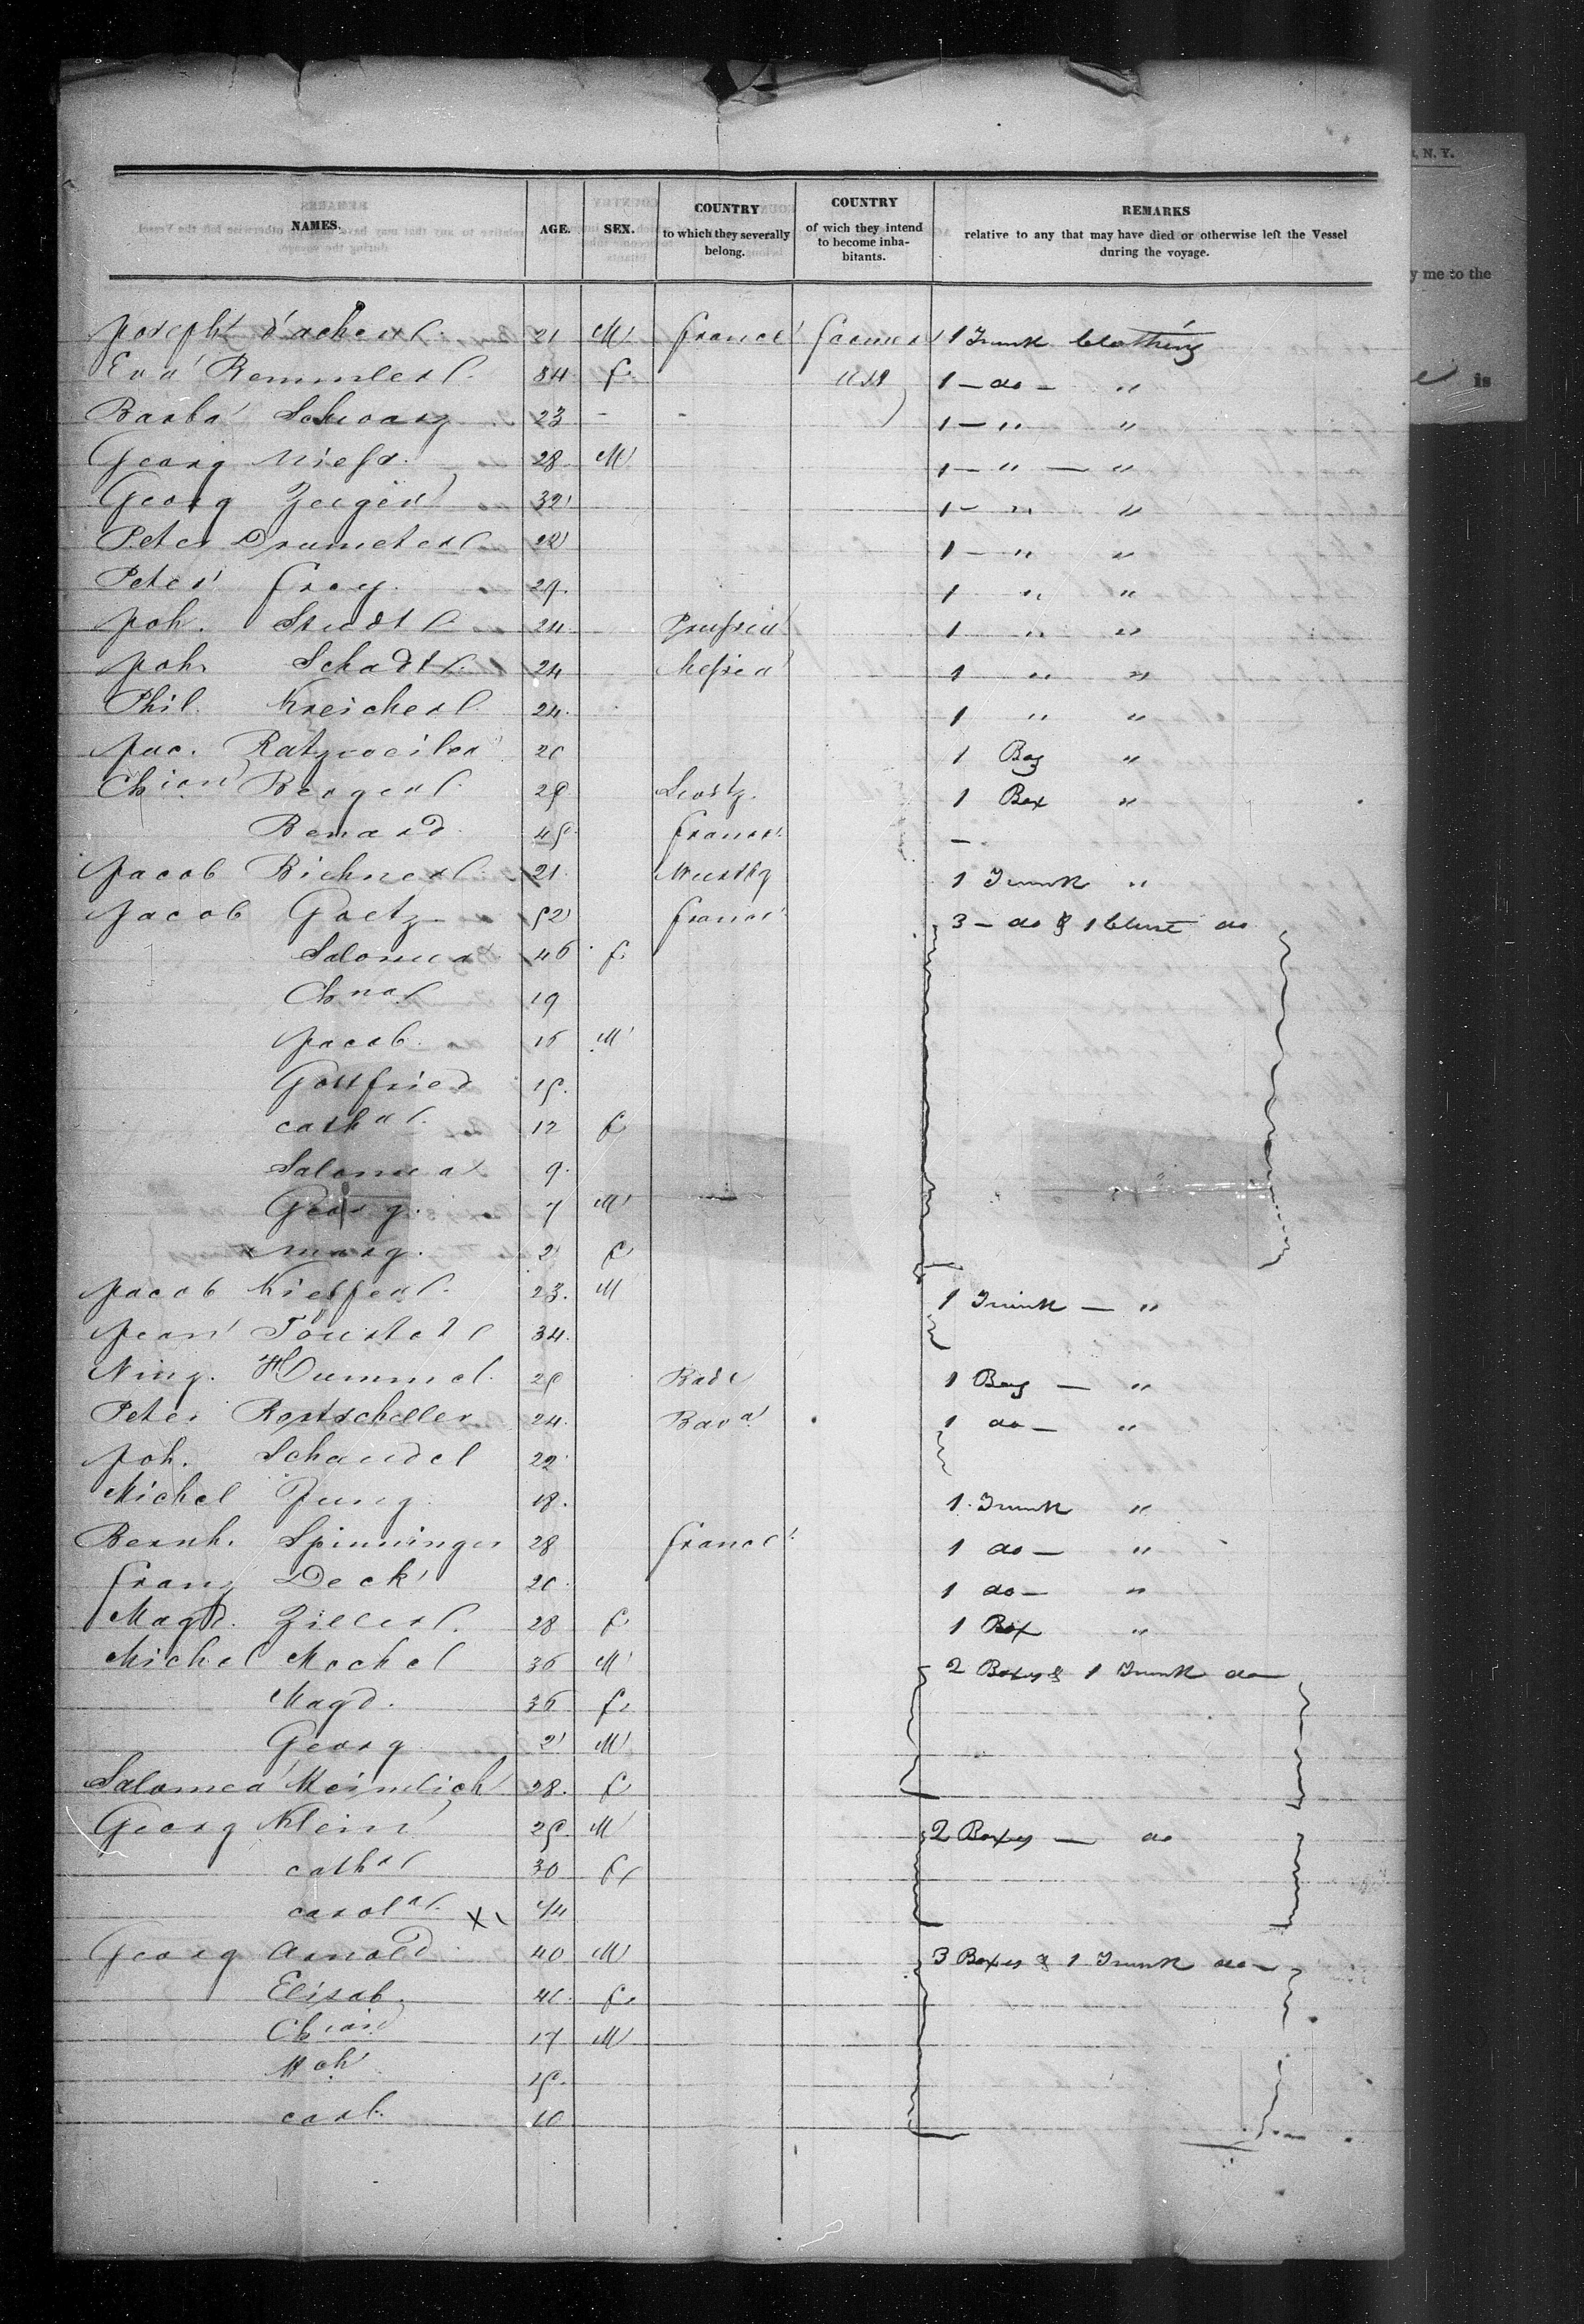 NAMES. AGE. SEX. COUNTRY to which they severally belong. COUNTRY of wich they intend to become inhabitants. REMARKS relative to any that may have died or otherwise left the Vessel during the voyage.
, N. Y.
y me to the
is
Joseph 21 M France Farmer 1 Trunk Clothing
Eva Remmler 84 f USA 1 - do - "
Barba Schwarz 23 - - 1 - " "
Georg 28 M 1 - " - "
Georg 32 1 - " "
Peter Drumeter 22 1 - " "
Peter Frey 29. 1 " "
Joh. Studt 24 Preussen 1 " "
Joh. Schadt 24 Hessen 1 " "
Phil. Kreicher 24 1 " "
Jac. Ratzweiler 20 1 Bag "
Chian Berger 25 1 Box "
Benard 45 France -
Jacob Bichner 21 1 Trunk "
Jacob Goetz 52 France 3 - do & 1 Chest do
Salomea 46 f
19
Jacob 16 M
Gottfried 15
Catha 12 f
Salomea 9.
Georg 7 M
Marg. 2 f
Jacob Kieffer 23. M 1 Trunk - "
Jean 34
Hummel 25 Bade 1 Bag - "
Peter Rottscheller 24. Bava 1 do - "
Joh. Schandel 22
Michel Jung 18. 1 Trunk "
Bernh. Spinninger 28 France 1 do - "
Franz Deck 20 1 do - "
Magd. Ziller 28 f 1 Box "
Michel Mechel 36 M 2 Boxes & 1 Trunk do
Magd. 36 f
Georg 2 M
Salomea Heimlich 28. f
Georg Klein 25 M 2 Boxes - do
Cath 30 f
Carola X 1/4
Georg Arnold 40 M 3 Boxes & 1 Trunk do -
Elisab. 40 f
Chian 17 M
15
Carl 10